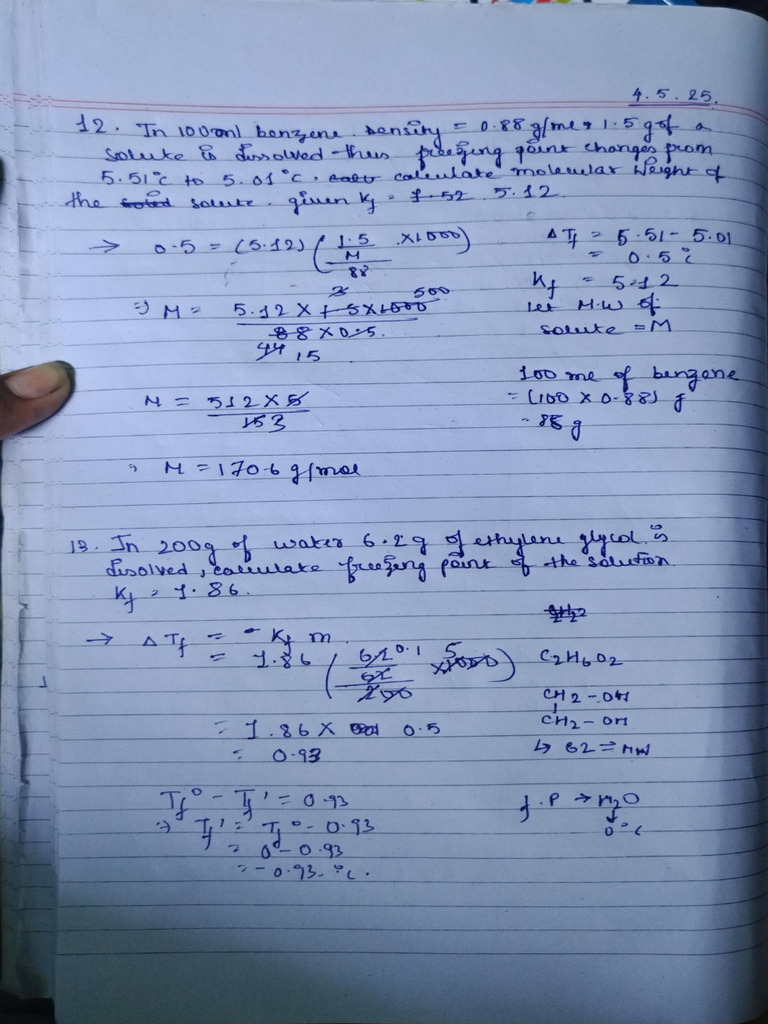 4.5.25.
12. In 100ml benzene density = 0.88 g/ml, 1.5 g of a
solute is dissolved thus freezing point changes from
5.51°C to 5.01°C. calculate molecular weight of
the solute. given Kf = 5.12.
→ 0.5 = (5.12) (1.5/M ×1000 / 88)
ΔTf = 5.51 - 5.01
= 0.5°C
Kf = 5.12
let M.W of
solute = M
⇒ M = 5.12 × 1.5 × 1000 3 500
88 × 0.5.
44 15
100 ml of benzene
= (100 × 0.88) g
= 88 g
M = 512 × 5
153
⇒ M = 170.6 g/mol
13. In 200g of water 6.2 g of ethylene glycol is
disolved, calculate freezing point of the solution
Kf = 1.86.
→ ΔTf = Kf m.
= 1.86 (6.2 0.1 / 62 ×1000 5 / 200)
C2H6O2
CH2-OH
CH2-OH
↳ 62 = MW
= 1.86 × 0.5
= 0.93
Tf° - Tf' = 0.93
⇒ Tf' = Tf° - 0.93
= 0 - 0.93
= -0.93 °C.
f.P → H2O
↓
0°C